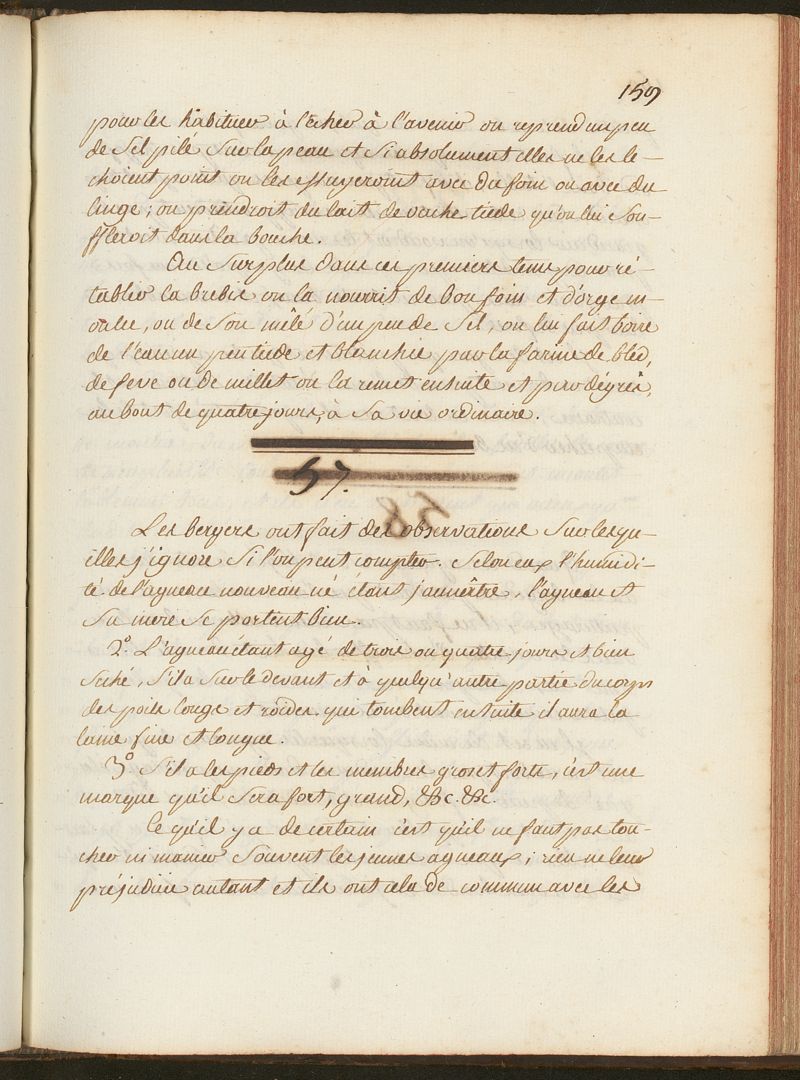 159
pour les habituer à lécher à l'avenir on reprend un peu
de sel pilé sur la peau et si absolument elles ne les le-
choient point on les essuyeroint avec du foin ou avec du
linge; on prendroit du lait de vache tiede qu'on lui sou-
ffleroit dans la bouche.
Au surplus dans ces premiers tems pour ré-
tablir la brebis on la nourrit de bon foin et d'orge m-
oulue, ou de son mêlé d'un peu de sel, on lui fait boire
de l'eau un peu tiede et blanchie par la farine de bled,
de feve ou de millet on la remet ensuite et par dégrés,
au bout de quatre jours, à sa vie ordinaire.
57.
58
Les bergers ont fait des observations sur lesqu-
elles j'ignore si l'on peut compter. Selon eux l'humidi-
té de l'agneau nouveau né étant jaunâtre, l'agneau et
sa mere se portent bien.
2.º L'agneau étant agé de trois ou quatre jours et bien
séché, s'il a sur le devant et à quelqu'autre partie du corps
des poils longs et roides qui tombent ensuite il aura la
laine fine et longue.
3º S'il a les pieds et les membres gros et forts, c'est une
marque qu'il sera fort, grand, &c. &c.
Ce qu'il y a de certain c'est qu'il ne faut pas tou-
cher ni manier souvent les jeunes agneaux; rien ne leur
préjudicie autant et ils ont cela de commun avec les